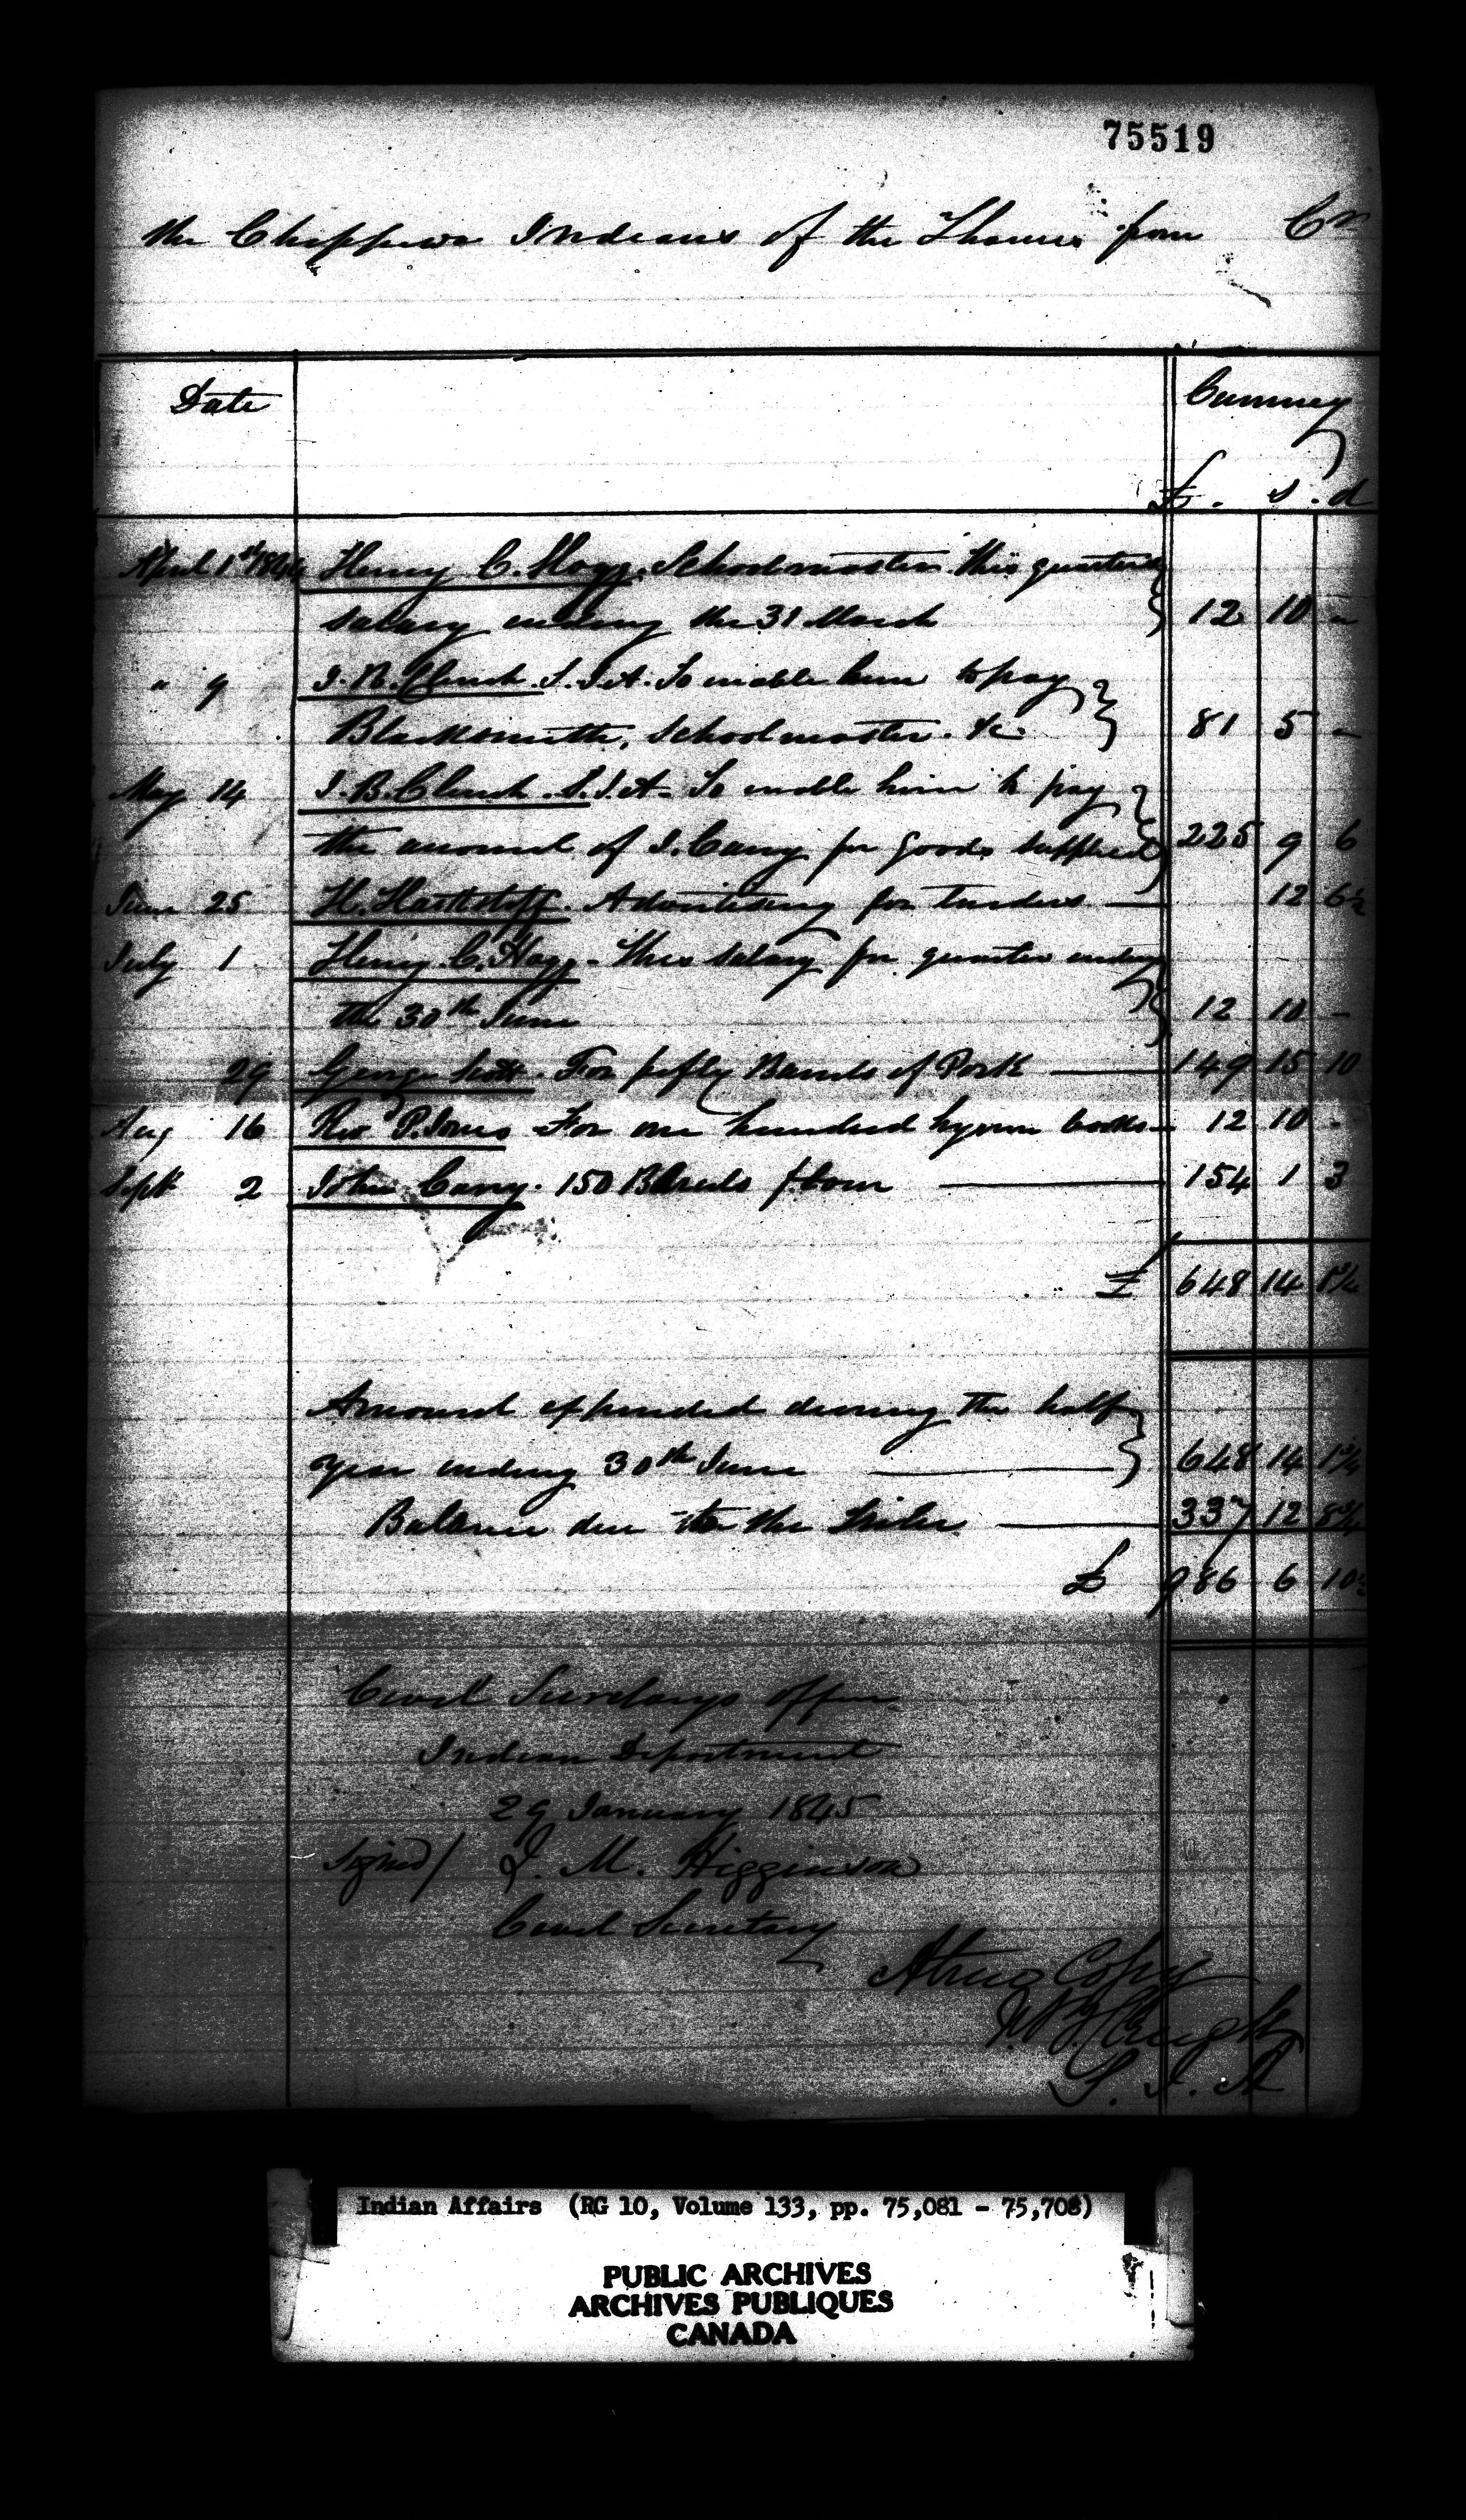 75519
the Chippewa Indians of the Thames from Cr
Date Currency
£. s. d
April 1st 1844 Henry C. Hogg. Schoolmaster. This quarters
salary ending the 31 March 12 10 -
" 9 J. B. Clench. S.I.A. To enable him to pay
Blacksmith, Schoolmaster. &c. 81 5 -
May 14 J. B. Clench. S.I.A. To enable him to pay
the account of J. Carey for goods supplied 225 9 6
June 25 H. Advertising for tenders — 12 6½
July 1 Henry C. Hogg. This salary for quarter ending
the 30th June 12 10 -
29 George Scott. For fifty Barrels of Pork — 149 15 10
Aug 16 Rev P. Jones For one hundred hymn books — 12 10 -
Sept 2 John Carey. 150 Barrels flour — 154 1 3
£ 648 14 1¾
Amount expended during the half
year ending 30th June — 648 14 1¾
Balance due to the Tribe — 337 12 8¾
£ 986 6 10½
Civil Secretarys Office
Indian Department
29 January 1845
Signed/ J. M. Higginson
Civil Secretary
A true Copy
J. B. Clench
S. I. A
Indian Affairs (RG 10, Volume 133, pp. 75,081 - 75,708)
PUBLIC ARCHIVES
ARCHIVES PUBLIQUES
CANADA